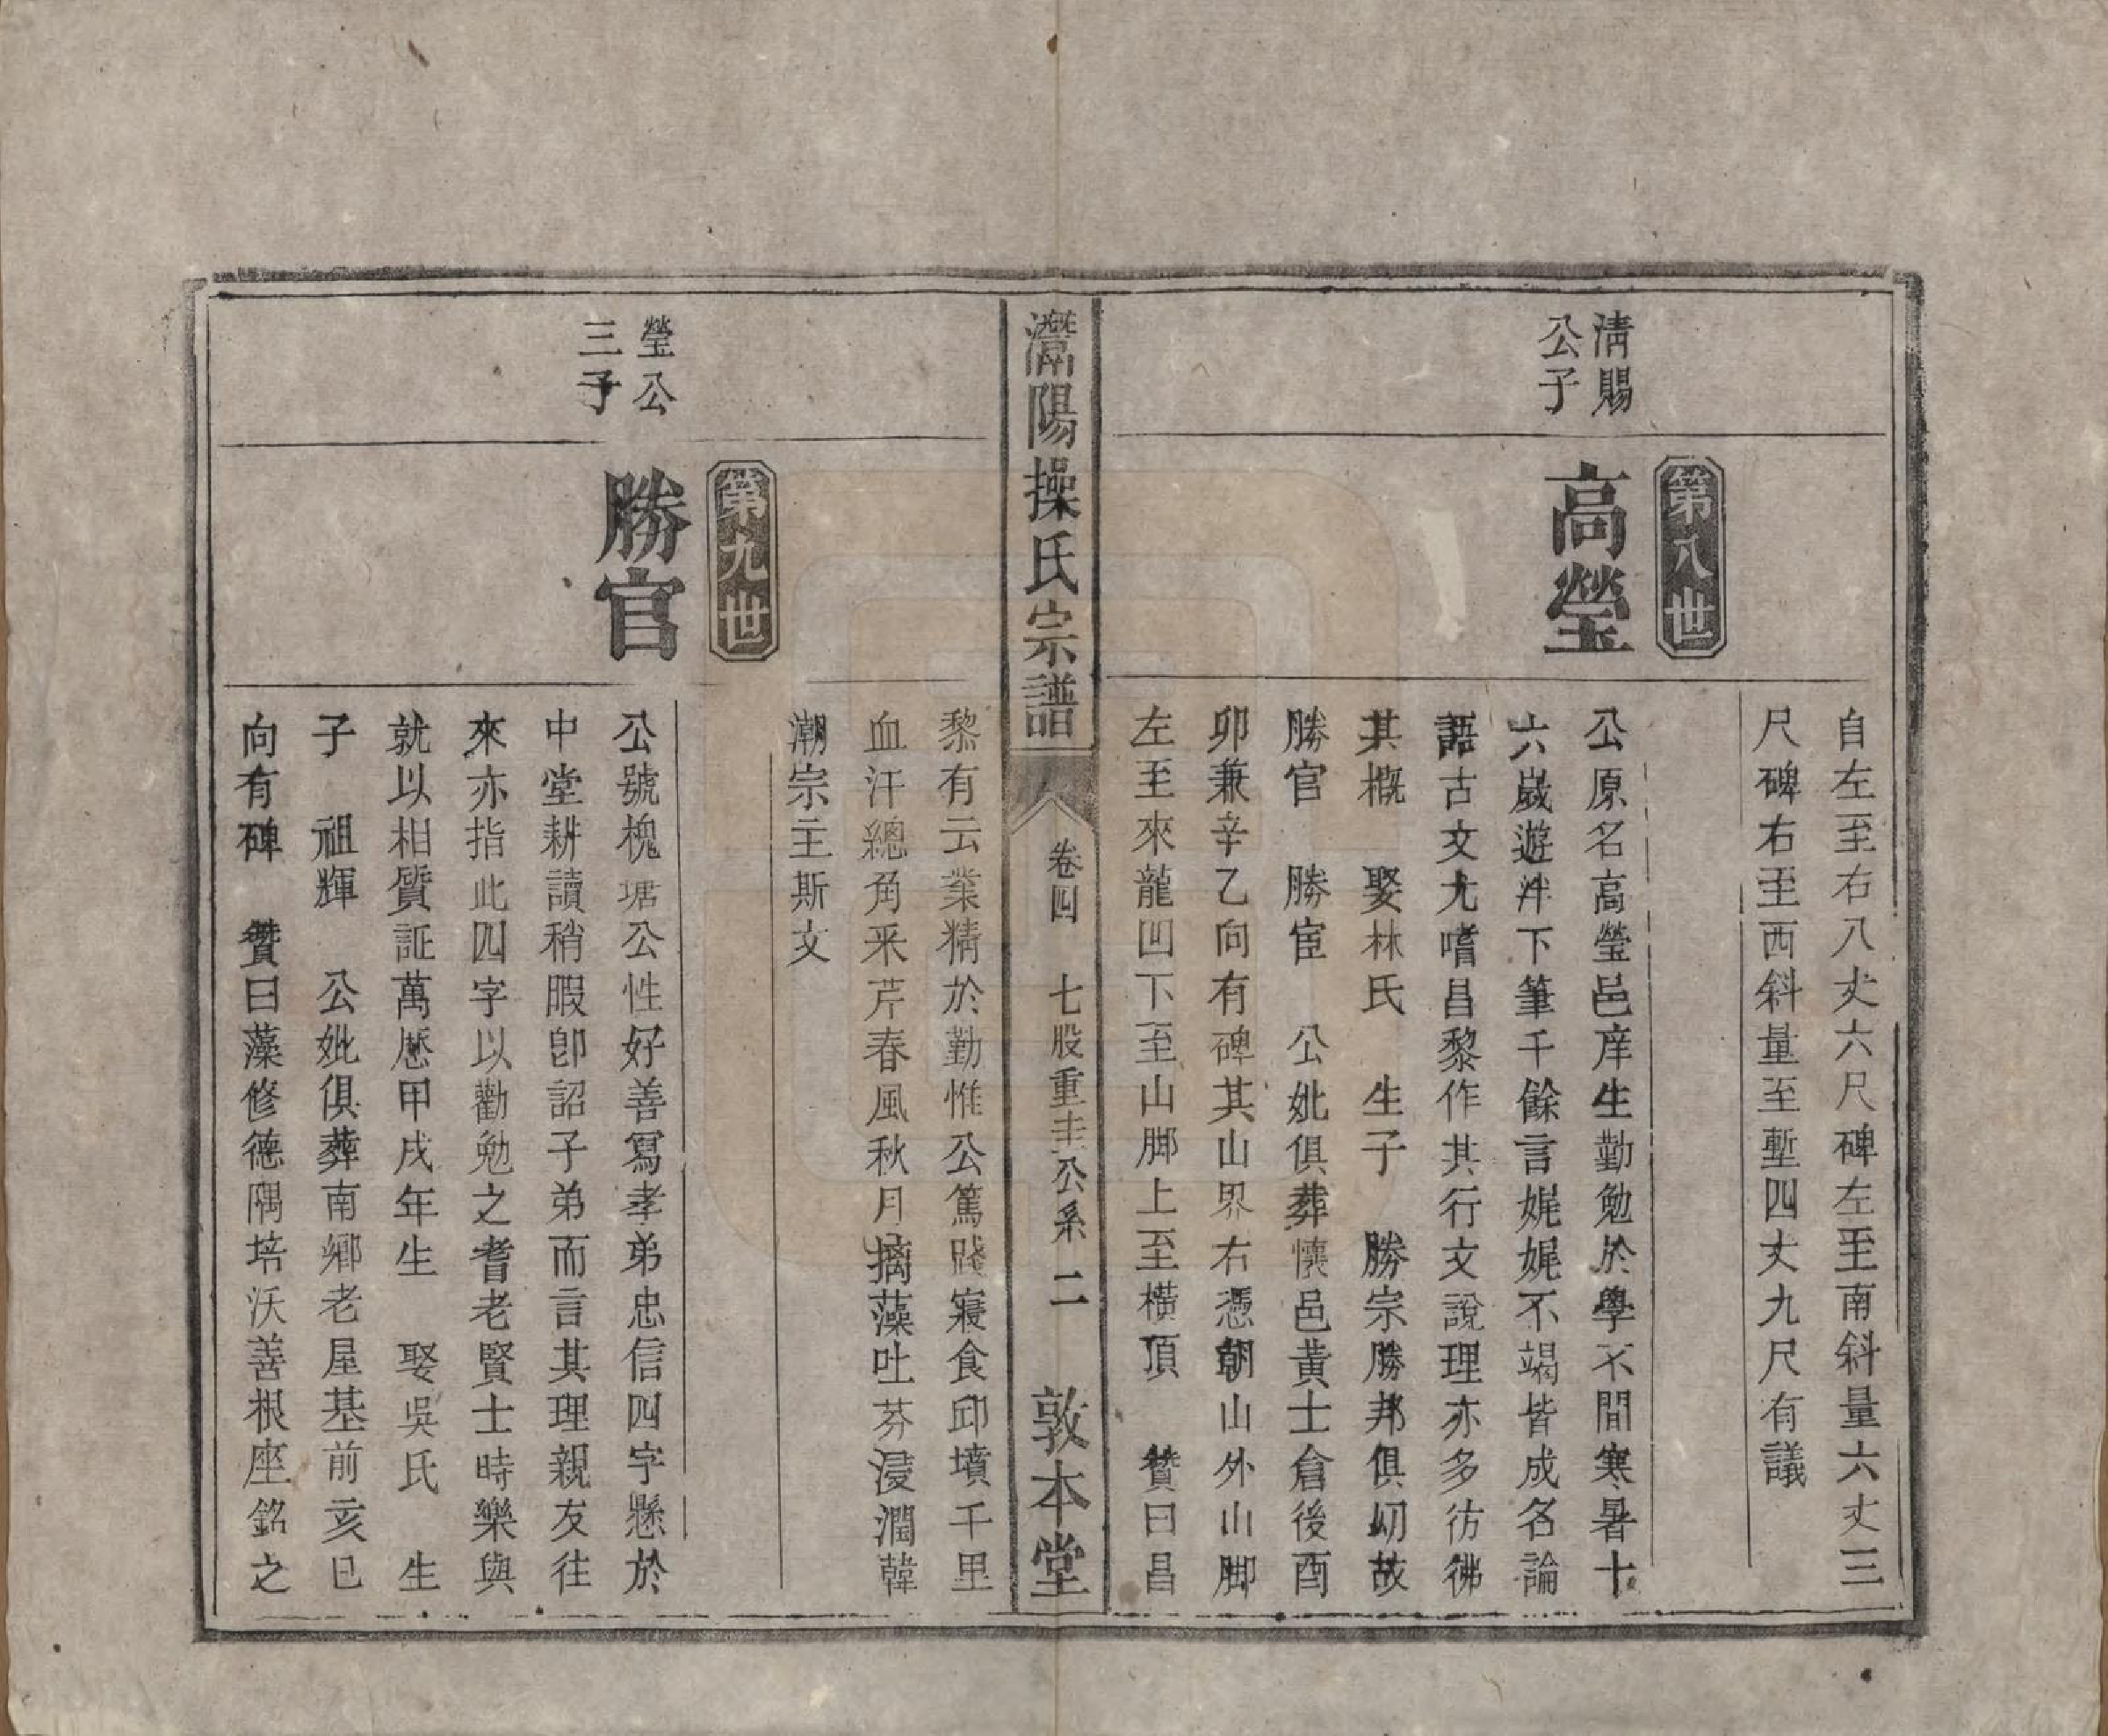 自左至右八丈六尺碑左至南斜量六丈三
尺碑右至西斜量至塹四丈九尺有議
第八世
清賜
公子
高瑩
公原名高瑩邑庠生勤勉於學不間寒暑十
六歲遊泮下筆千餘言娓娓不竭皆成名論
語古文尤嗜昌黎作其行文說理亦多彷彿
其概　娶林氏　生子　勝宗勝邦俱㓜故
勝官　勝宦　公妣俱葬懷邑黃士倉後酉
卯兼辛乙向有碑其山界右憑朝山外山脚
左至來龍凹下至山脚上至橫頂　贊曰昌
灊陽操氏宗譜　卷四　七股重圭公系　二　敦本堂
黎有云業精於勤惟公篤踐寢食邱墳千里
血汗總角采芹春風秋月摛藻吐芬浸潤韓
潮宗主斯文
第九世
瑩公
三子
勝官
公號槐塘公性好善寫孝弟忠信四字懸於
中堂耕讀稍暇卽詔子弟而言其理親友往
來亦指此四字以勸勉之耆老賢士時樂與
就以相質証萬厯甲戌年生　娶吳氏　生
子　祖輝　公妣俱葬南鄉老屋基前亥巳
向有碑　贊曰藻修德隅培沃善根座銘之